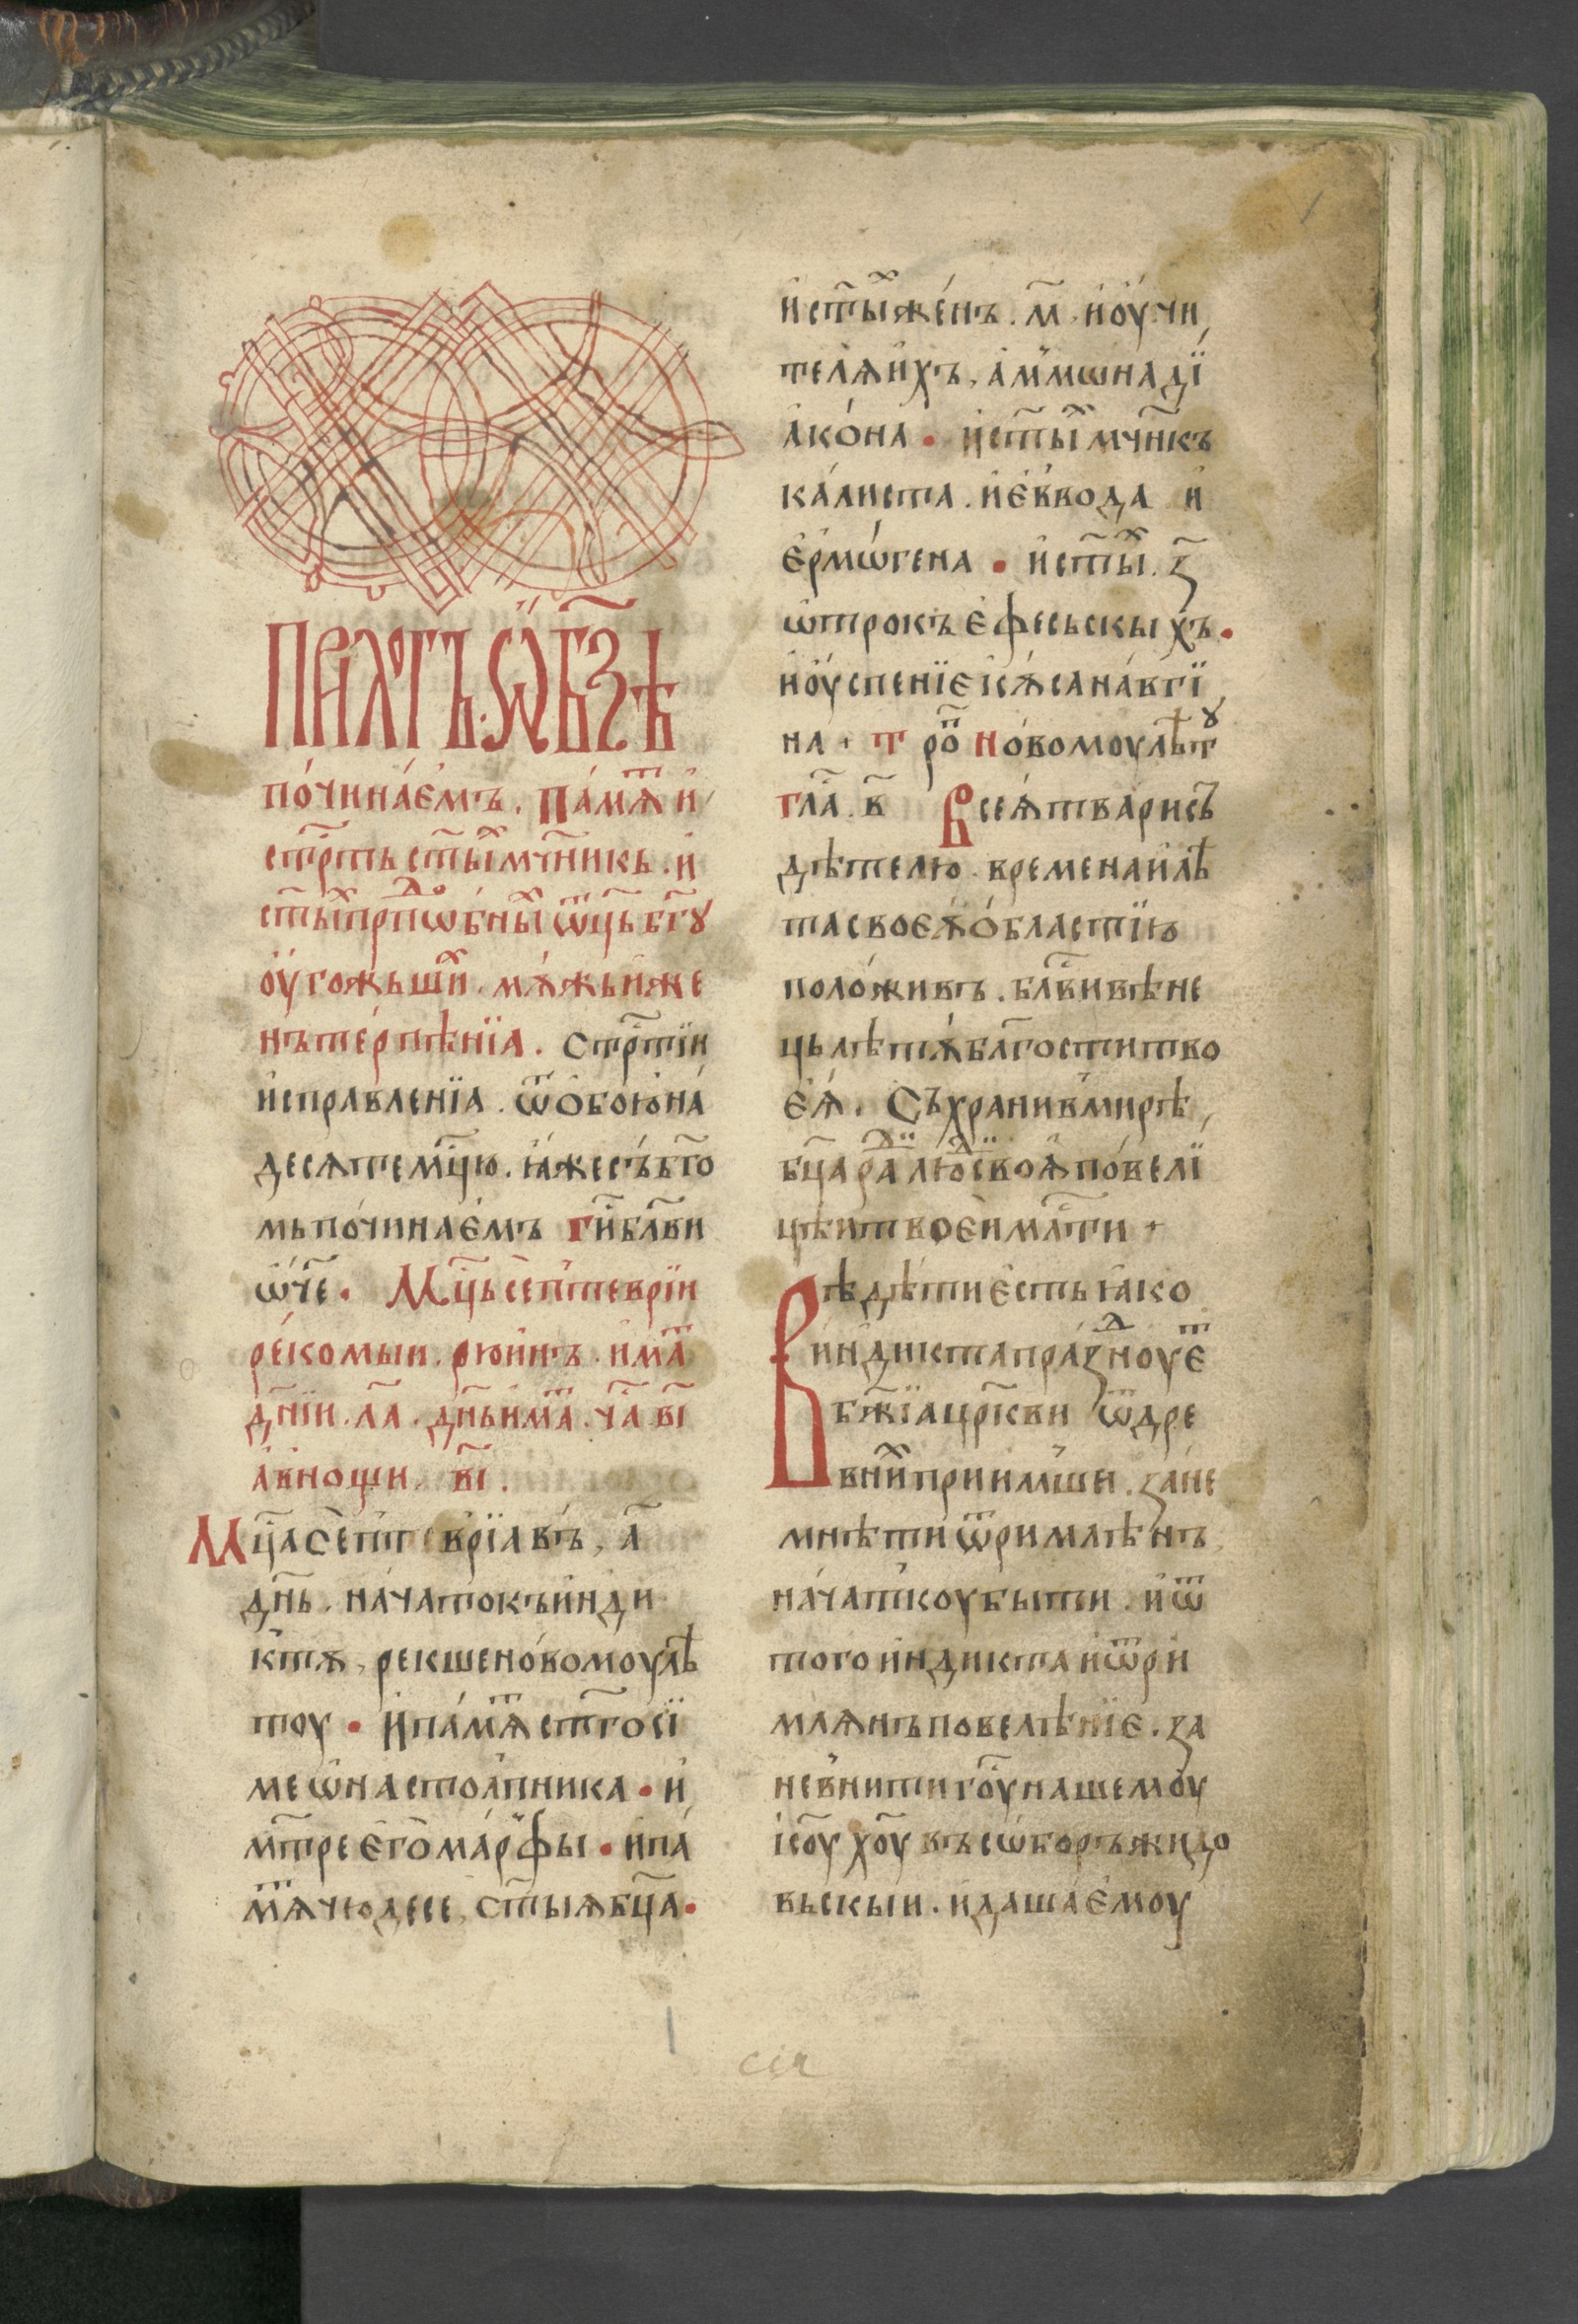 ПРОЛОГЪ. Ѡ БЗѢ
починаемъ. памѧт҇ и
стрⷭ҇ть ст҃ыхъ мч҃никь. и
ст҃ыⷯ прпⷣѡбныⷯ ѿц҃ь бг҃ꙋ
оугожьшиⷯ. мѫжь и же
нъ терпѣнїа. стрⷭ҇тїи
исправленїа. ѿ обою на
десѧте мц҃ю. ꙗже съ бг҃о
мь починаемъ ги҃ блв҃и
ѡч҃е. Мц҃ь септеврїи
рекомыи. рюинъ. имаⷮ
дн҃їи. л҃а. дн҃ь имаⷮ. ча҃ в҃і
а в нощи. в҃і.
Мц҃а септеврїа въ, а҃
дн҃ь. начатокъ инди
ктѫ, рекше новомоу лѣ
тоу • И памѧⷮ ст҃го сї
меѡна столпника • и
мт҃ре его марѳы • и па
мѧⷮ чюдесе, ст҃ыѧ бц҃а •
и ст҃ыⷯ женъ. м҃. и оучи
телѧ ихъ, аммѡна дї
акона • и ст҃ыⷯ мч҃нкъ
калиста. и еввода и
ермѡгена • и ст҃ыⷯ. з҃
ѡтрокъ ефесьскыхъ •
и оуспенїе іс҃ѫса навгї
на + т роⷫ новомоу лѣтꙋ
гла҃. в҃ Всеѧ твари съ
дѣтелю. времена и лѣ
та своеѫ областїю
положивъ. блв҃и вѣне
ць лѣтѫ благости тво
еѧ. Съхрани в мирѣ,
бц҃а раⷣ люⷣи своѧ повелї
цѣи твоеи мл҃ти +
Вѣдѣти есть ꙗко
индикта праⷥⷣноуеⷮ
бж҃їа цр҃кви ѿ дре
вниⷯ приимши. зане
мнѣти ѿ римлѣнъ,
начатк҃оу быти. и ѿ
того индикта и ѿ ри
млѧнъ повелѣнїе. за
не внити го҃у нашемоу
іс҃оу хо҃у въ сѡборъ жидо
вьскыи. и даша емоу